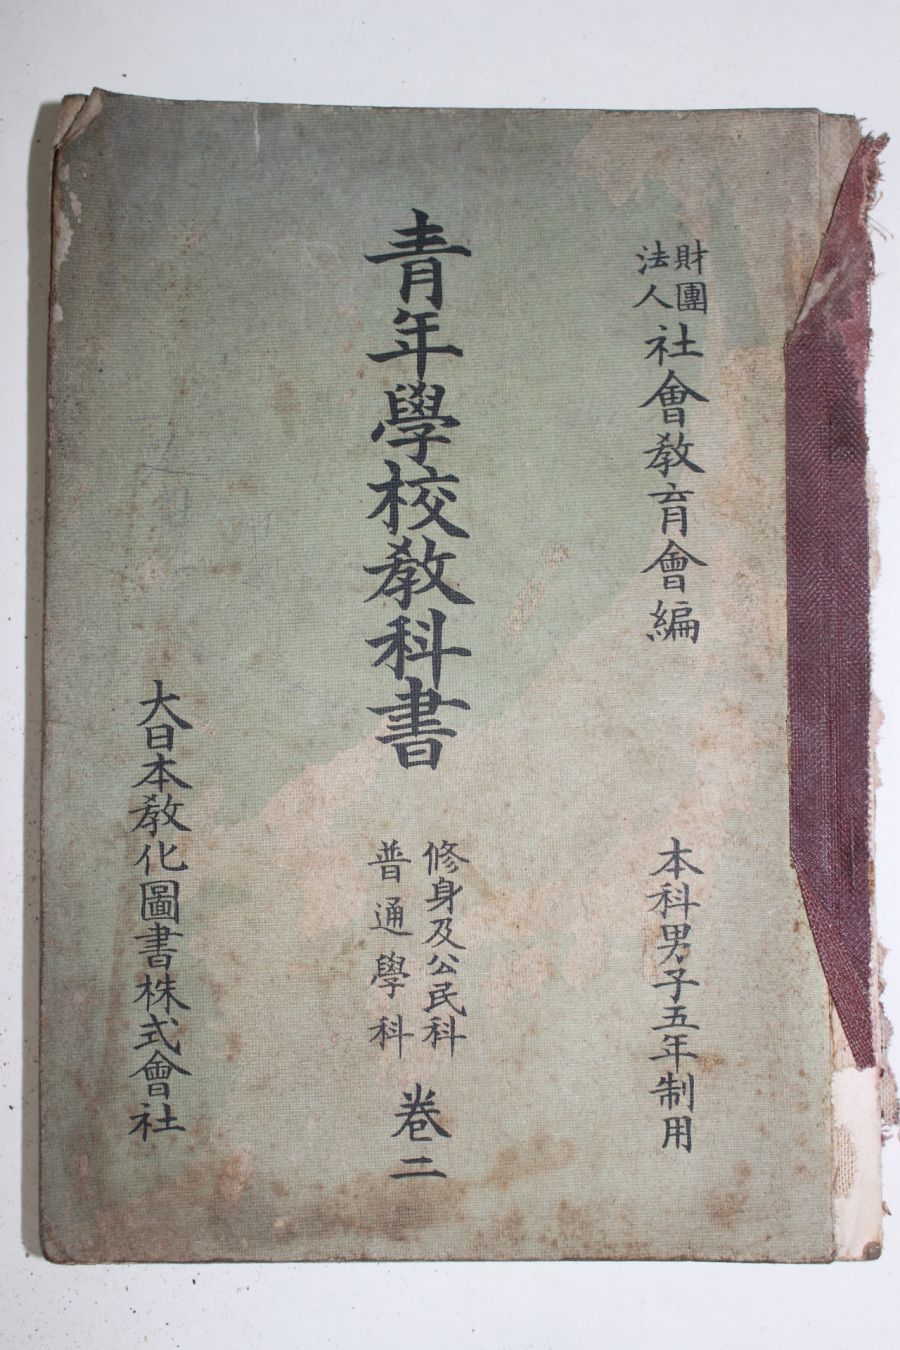 財團法人社會教育會編
本科男子五年制用
青年學校教科書
修身及公民科
普通學科
卷二
大日本教化圖書株式會社